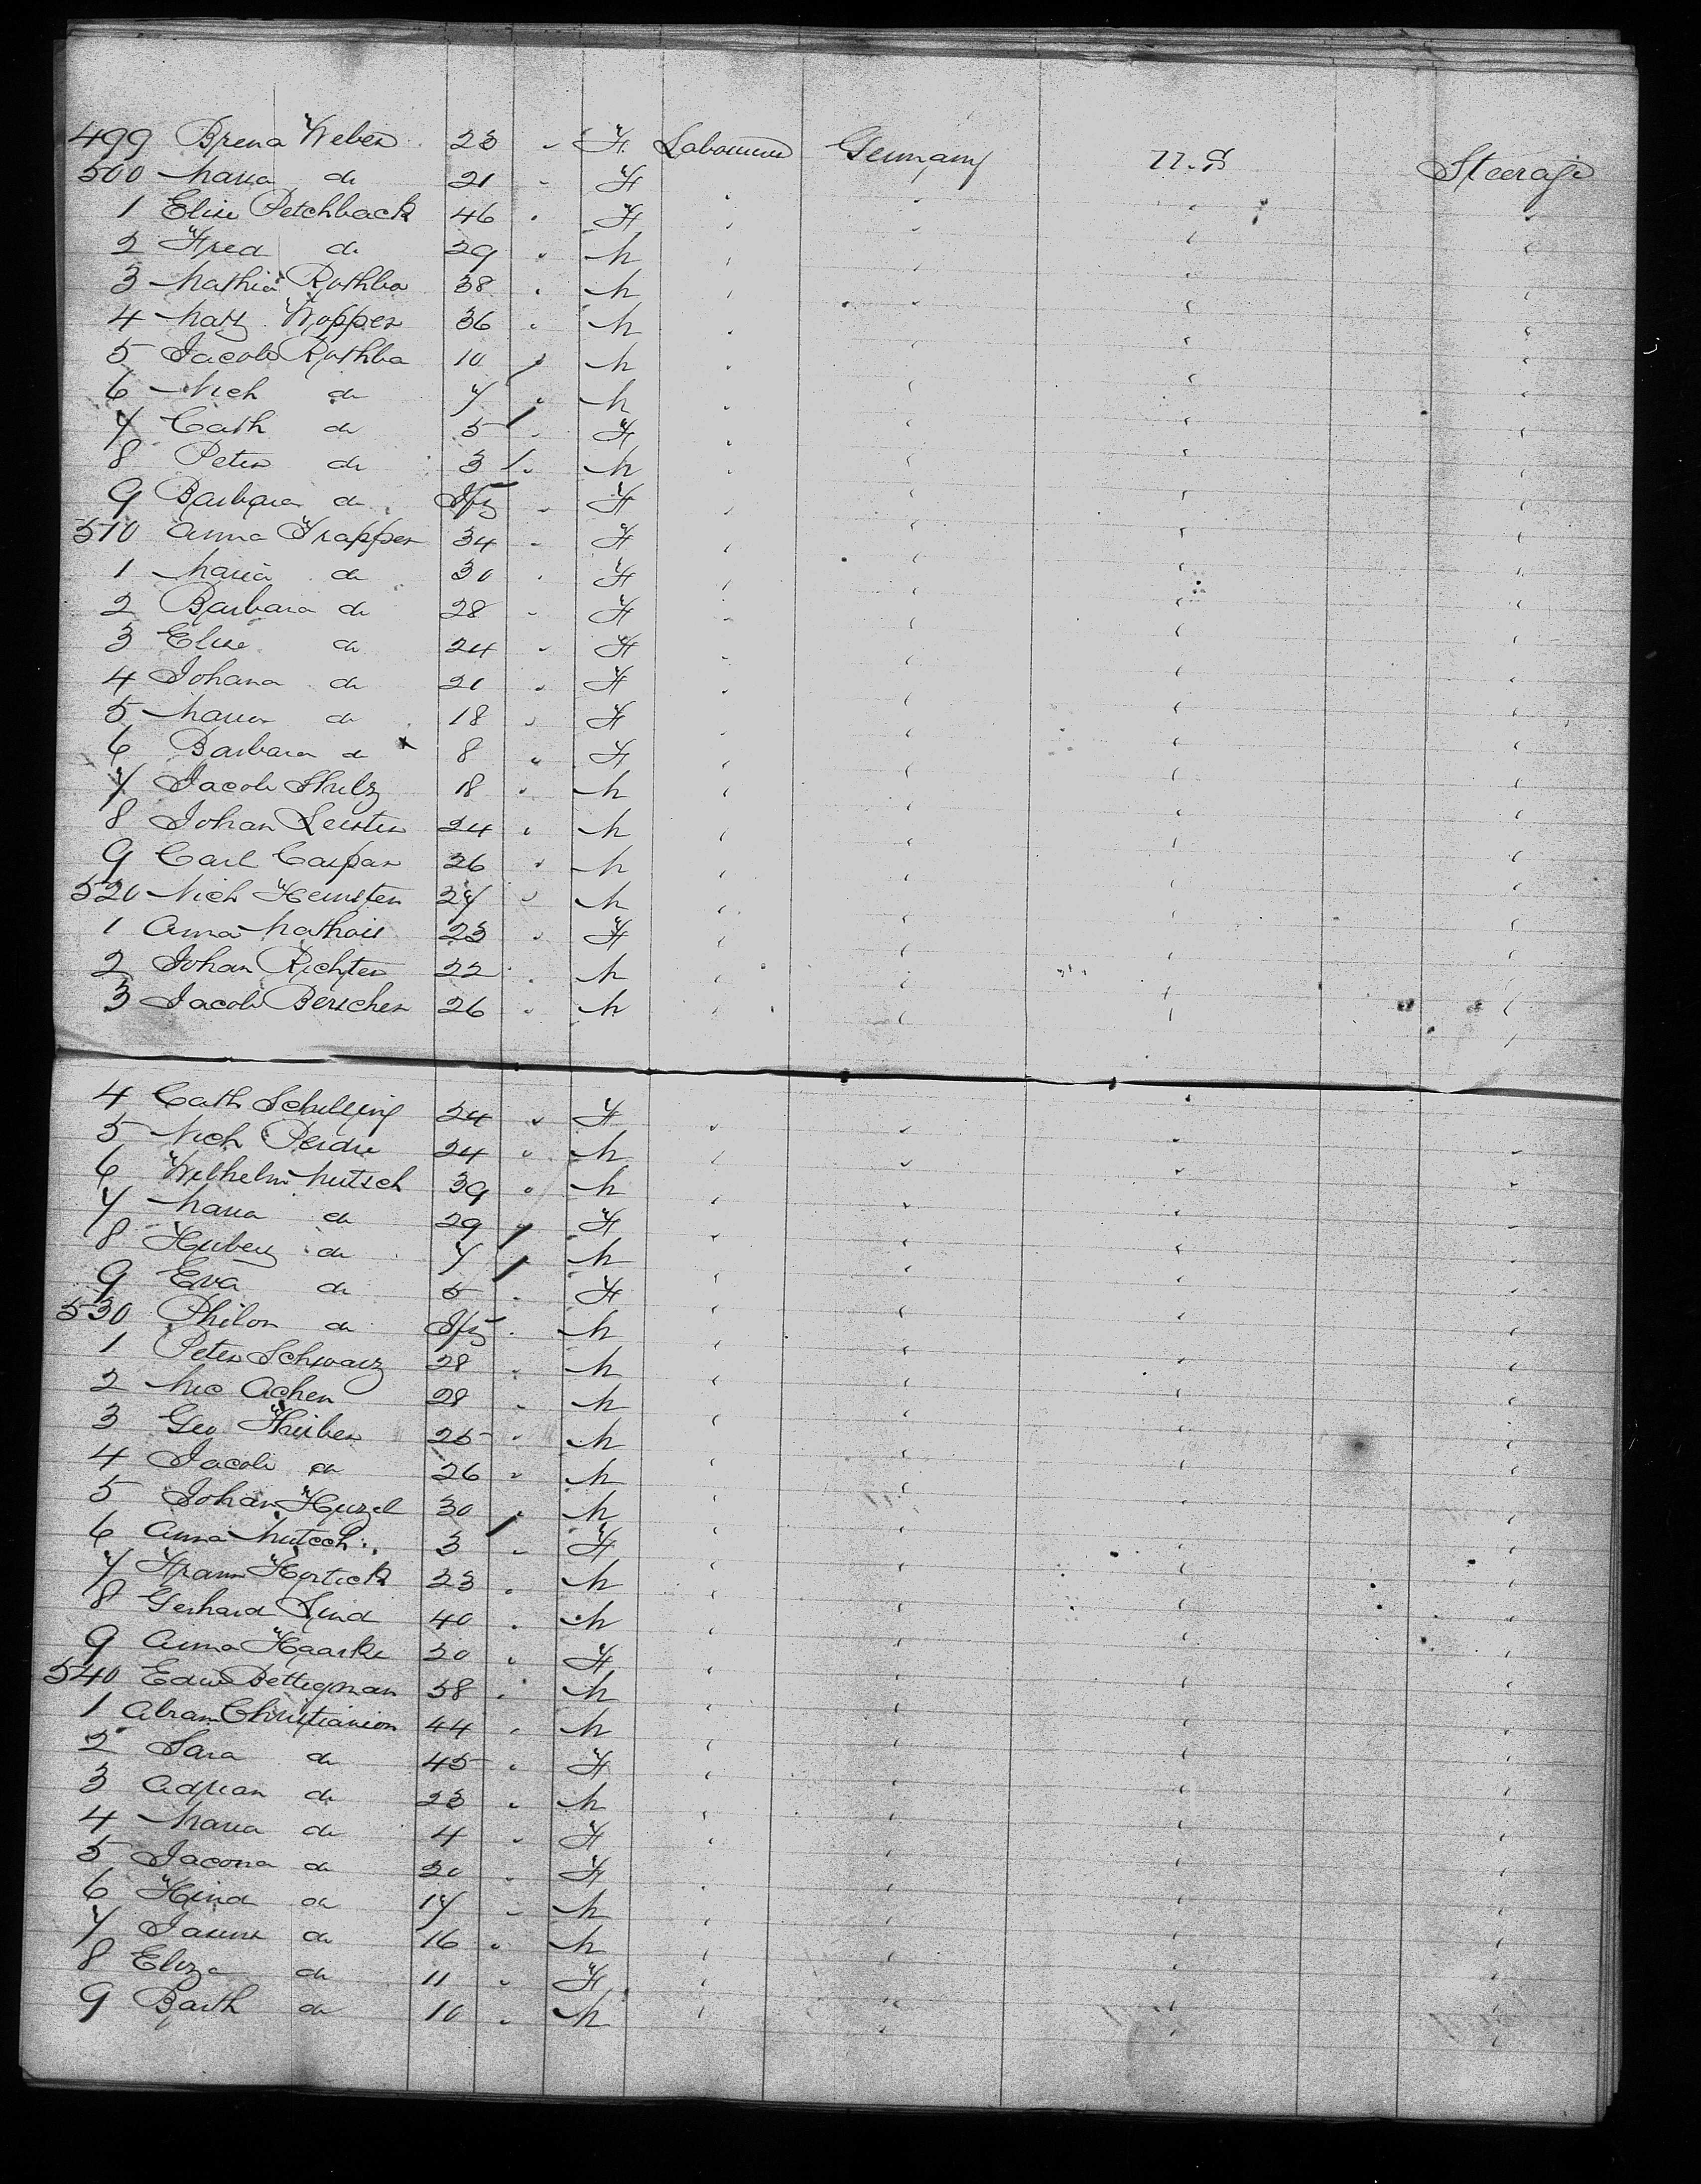 499 Brena Weber 23 " F. Labourer Germany U.S Steerage
500 Maria do 21 " F " " " "
1 Elise Petchback 46 " F " " " "
2 Fred do 29 " M " " " "
3 Mathia Rothba 38 " M " " " "
4 Matz Wopper 36 " M " " " "
5 Jacob Rothba 10 " M " " " "
6 Nich do 7 " M " " " "
7 Cath do 5 " F " " " "
8 Peter do 3 " M " " " "
9 Barbara do Inf " F " " " "
510 Anna Trapper 34 " F " " " "
1 Maria do 30 " F " " " "
2 Barbara do 28 " F " " " "
3 Elise do 24 " F " " " "
4 Johana do 21 " F " " " "
5 Maria do 18 " F " " " "
6 Barbara do 8 " F " " " "
7 Jacob Shulz 18 " M " " " "
8 Johan Leister 24 " M " " " "
9 Carl Caspar 26 " M " " " "
520 Nich Heinsten 27 " M " " " "
1 Anna Mathais 23 " F " " " "
2 Johan Richter 22 " M " " " "
3 Jacob Berscher 26 " M " " " "
4 Cath Schilling 24 " F " " " "
5 Nich Perdie 24 " M " " " "
6 Wilhelm Mutsch 39 " M " " " "
7 Maria do 29 " F " " " "
8 Hubery do 7 " M " " " "
9 Eva do 5 " F " " " "
530 Philom do Inf " M " " " "
1 Peter Schwarz 28 " M " " " "
2 Nic Achen 28 " M " " " "
3 Geo Huber 25 " M " " " "
4 Jacob do 26 " M " " " "
5 Johan Huzel 30 " M " " " "
6 Anna Mutsch 3 " F " " " "
7 Frann Hortick 23 " M " " " "
8 Gerhard Lind 40 " M " " " "
9 Anna Haarke 30 " F " " " "
540 Edw Bettegman 38 " M " " " "
1 Abram Christianson 44 " M " " " "
2 Sara do 45 " F " " " "
3 Adrian do 23 " M " " " "
4 Maria do 4 " F " " " "
5 Jacona do 20 " F " " " "
6 Hind do 17 " M " " " "
7 do 16 " M " " " "
8 Eliza do 11 " F " " " "
9 Barth do 10 " M " " " "